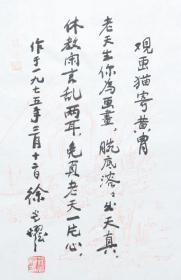 观画猫寄黄胄
老天生你为画画，脱底溶溶出天真。
休教闲言乱两耳，免负老天一片心。
作于一九七五年三月十二日 徐光耀